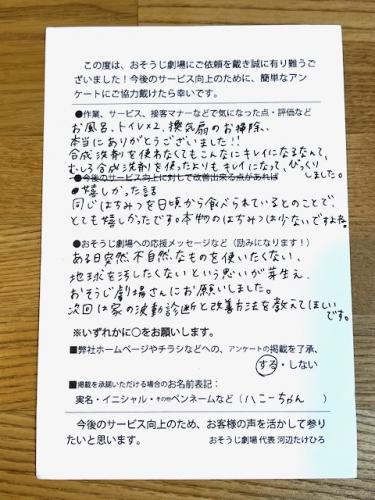 この度は、おそうじ劇場にご依頼を戴き誠に有り難うご
ざいました！今後のサービス向上のために、簡単なアン
ケートにご協力戴けたら幸いです。
●作業、サービス、接客マナーなどで気になった点・評価など
お風呂、トイレ×2、換気扇のお掃除、
本当にありがとうございました!!
合成洗剤を使わなくてもこんなにキレイになるなんて、
むしろ合成洗剤を使ったよりもキレイになって、びっくり
しました。
●今後のサービス向上に対して改善出来る点があれば
●嬉しかった話
同じはちみつを日頃から食べられているとのことで、
とても嬉しかったです。本物のはちみつは少ないですよね。
●おそうじ劇場への応援メッセージなど（励みになります！）
ある日突然、不自然なものを使いたくない、
地球を汚したくないという思いが芽生え、
おそうじ劇場さんにお願いしました。
次回は家の波動診断と改善方法を教えてほしい
です。
※いずれかに○をお願いします。
■弊社ホームページやチラシなどへの、アンケートの掲載を了承、
する・しない
■掲載を承諾いただける場合のお名前表記：
実名・イニシャル・その他ペンネームなど（ハニーちゃん）
今後のサービス向上のため、お客様の声を活かして参り
たいと思います。
おそうじ劇場 代表 河辺たけひろ